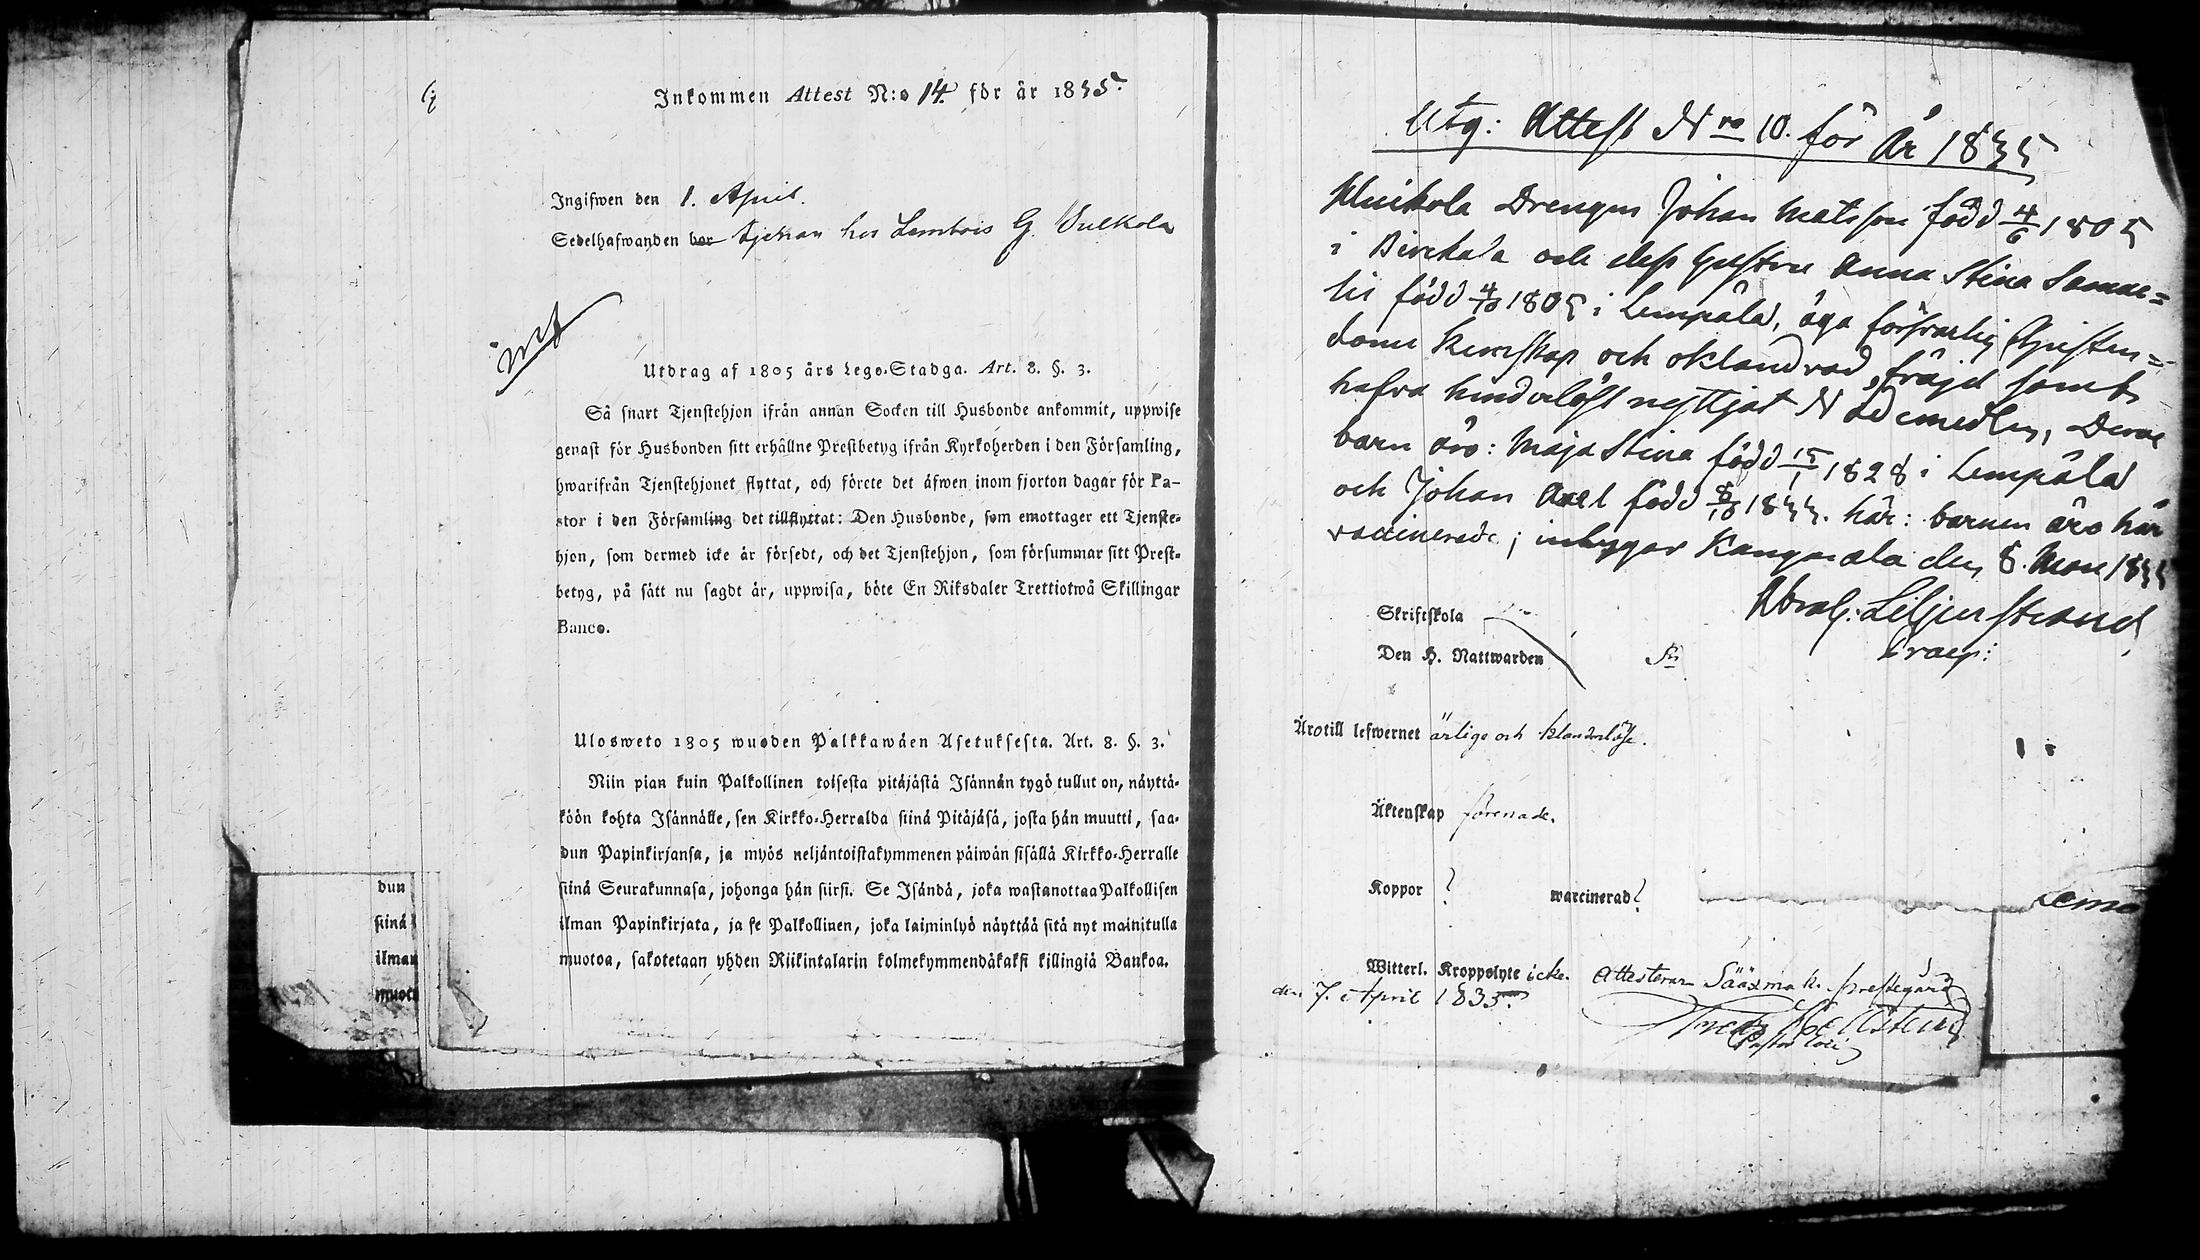 Inkommen Attest N:o 14. för år 1835.
Ingifwen den 1. April.
Sedelhafwanden bor tjenar hos Lembois G. Vulkola
inf
Utdrag af 1805 års Lego-Stadga. Art. 8. §. 3.
Så snart Tjenstehjon ifrån annan Socken till Husbonde ankommit, uppwise
genast för Husbonden sitt erhållne Prestbetyg ifrån Kyrkoherden i den Församling,
hwarifrån Tjenstehjonet flyttat, och förete det äfwen inom fjorton dagar för Pa-
stor i den Församling det tillflyttat: Den Husbonde, som emottager ett Tjenste-
hjon, som dermed icke är försedt, och det Tjenstehjon, som försummar sitt Prest-
betyg, på sätt nu sagdt är, uppwisa, böte En Riksdaler Trettiotwå Skillingar
Banco.
Ulosweto 1805 wuoden Palkkawäen Asetuksesta. Art. 8. §. 3.
Niin pian kuin Palkollinen toisesta pitäjästä Isännän tygö tullut on, näyttä-
köön kohta Isännälle, sen Kirkko-Herralda siinä Pitäjäsä, josta hän muutti, saa-
dun Papinkirjansa, ja myös neljäntoistakymmenen päiwän sisällä Kirkko-Herralle
siinä Seurakunnasa, johonga hän siirsi. Se Isändä, joka wastanottaa Palkollisen
ilman Papinkirjata, ja se Palkollinen, joka laiminlyö näyttää sitä nyt mainitulla
muotoa, sakotetaan yhden Riikintalarin kolmekymmendäkaksi killingiä Bankoa.
dun
siinä
ilman
muoto
Utg: Attest Nro 10. för År 1835
Drengen Johan Matsson född 4/6 1805
i Birckala och dess hustru Anna Stina Samue=
lis född 4/10 1805 i Lempälä, äga försvarlig Christen=
doms kunskap och oklandrad fräjd samt
hafva hinderlöst nyttjat Nådemedlen, Deras
barn äro: Maja Stina född 15/1 1828 i Lempälä
och Johan Axel född 8/10 1833. här: barnen äro här
vaccinerade; intygar Kangasala den 8. Mars 1835
Abrah: Liljenstrand
Skriftskola
Den H. Nattwarden
Äro till lefwernet ärliga och klanderlöse.
Äktenskap förenade.
Koppor ? waccinerad?
Lem
Witterl. Kroppslyte icke. Attesterar Sääxmäki prestegård
den 7. April 1835.
Pastor loci